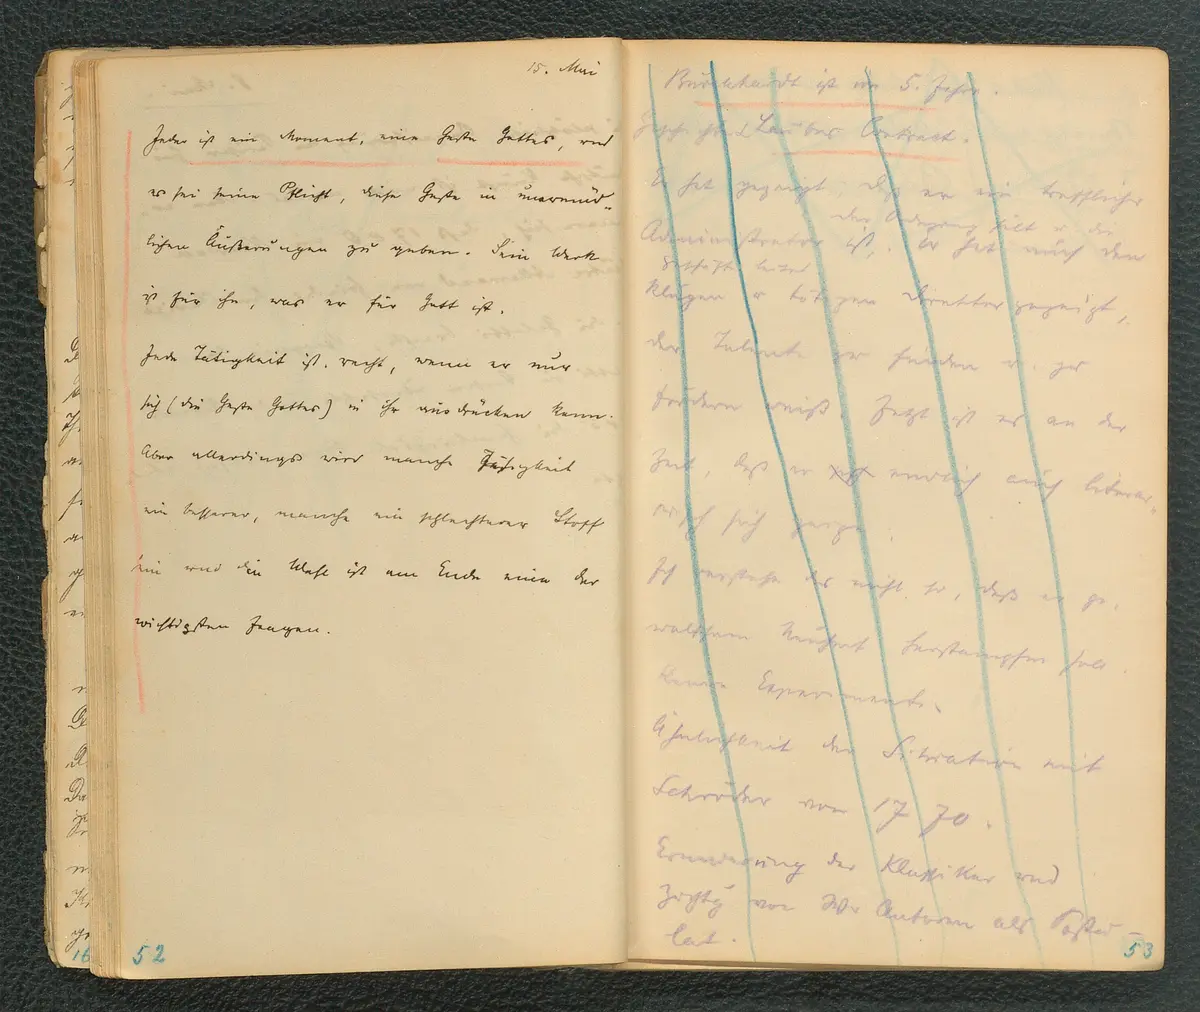 15. Mai
Jeder ist ein Moment, eine Geste Gottes, und
es sei seine Pflicht, diese Geste in unermüd-
lichen Äußerungen zu geben. Sein Werk
ist für ihn, was er für Gott ist.
Jede Tätigkeit ist recht, wenn er nur
sich (die Geste Gottes) in ihr ausdrücken kann.
Aber allerdings wird manche Tätigkeit
ein besserer, manche ein schlechterer Stoff
sein und die Wahl ist am Ende eine der
wichtigsten Fragen.
52
Burckhardt ist im 5. Jahre.
Laubes Contract.
Er hat gezeigt, daß er ein trefflicher
Administrator ist, der Ordnung hält u. die
Geschäfte leitet. Er hat auch den
klugen u tätigen Direktor gezeigt,
der Talente zu finden u. zu
fördern weiß. Jetzt ist es an der
Zeit, daß er endlich auch literar-
isch sich zeige.
Ich verstehe das nicht so, daß er ge-
waltsam Neuheit herstampfen soll.
Keine Experimente.
Ähnlichkeit der Situation mit
Schröder von 1770.
Erneuerung der Klassiker und
von Wr Autoren als Postu-
lat.
53
16